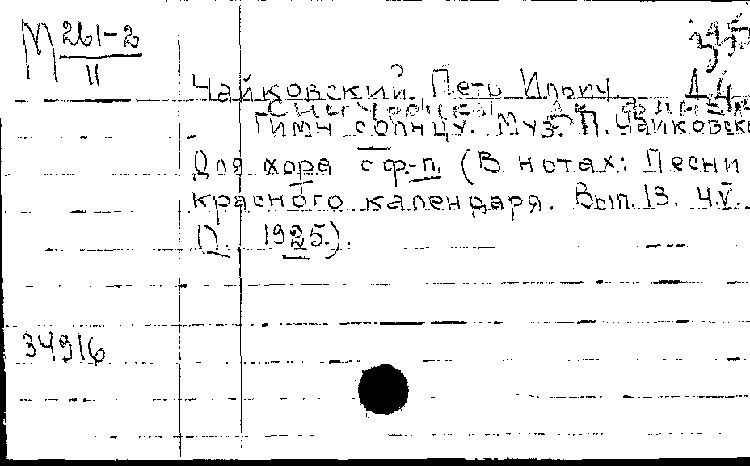 М 261-2
II
Чайковский Петр Ильич.
Гимн солнцу. Муз. П. Чайковско
Для хора с ф.-п. (В нотах: Песни
красного календаря. Вып. 13. Ч.V.
1925.).
34916